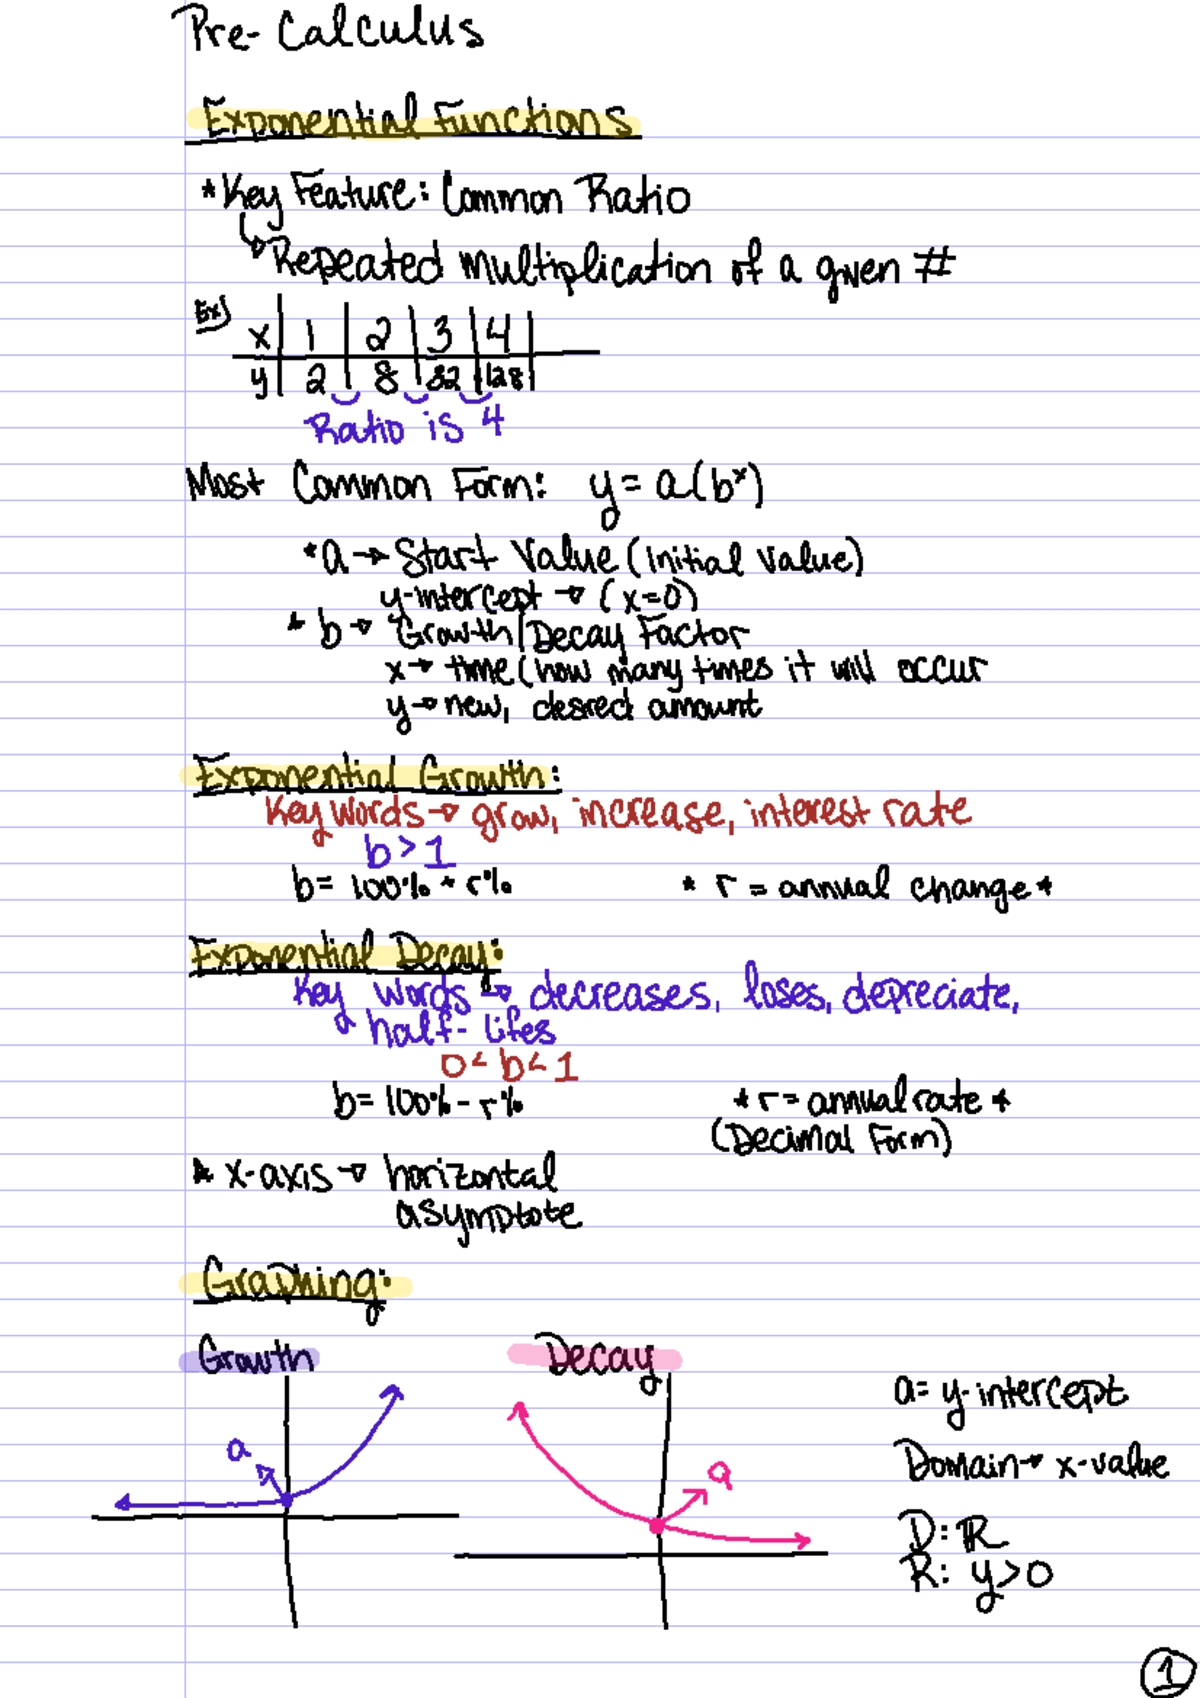 Pre-Calculus
Exponential Functions
*Key Feature: Common Ratio
↳Repeated multiplication of a given #
Ex) x | 1 | 2 | 3 | 4 |
y | 2 | 8 | 32 | 128 |
Ratio is 4
Most Common Form: y = a(bˣ)
*a → Start Value (initial value)
y-intercept → (x=0)
* b → Growth/Decay Factor
x → time (how many times it will occur
y → new, desired amount
Exponential Growth:
Key Words → grow, increase, interest rate
b > 1
b = 100% + r% * r = annual change *
Exponential Decay:
Key words → decreases, loses, depreciate,
half-lifes
0 < b < 1
b = 100% - r% * r = annual rate *
(Decimal Form)
* x-axis → horizontal
asymptote
Graphing:
Growth Decay
a = y-intercept
a a
Domain → x-value
D: ℝ
R: y > 0
1